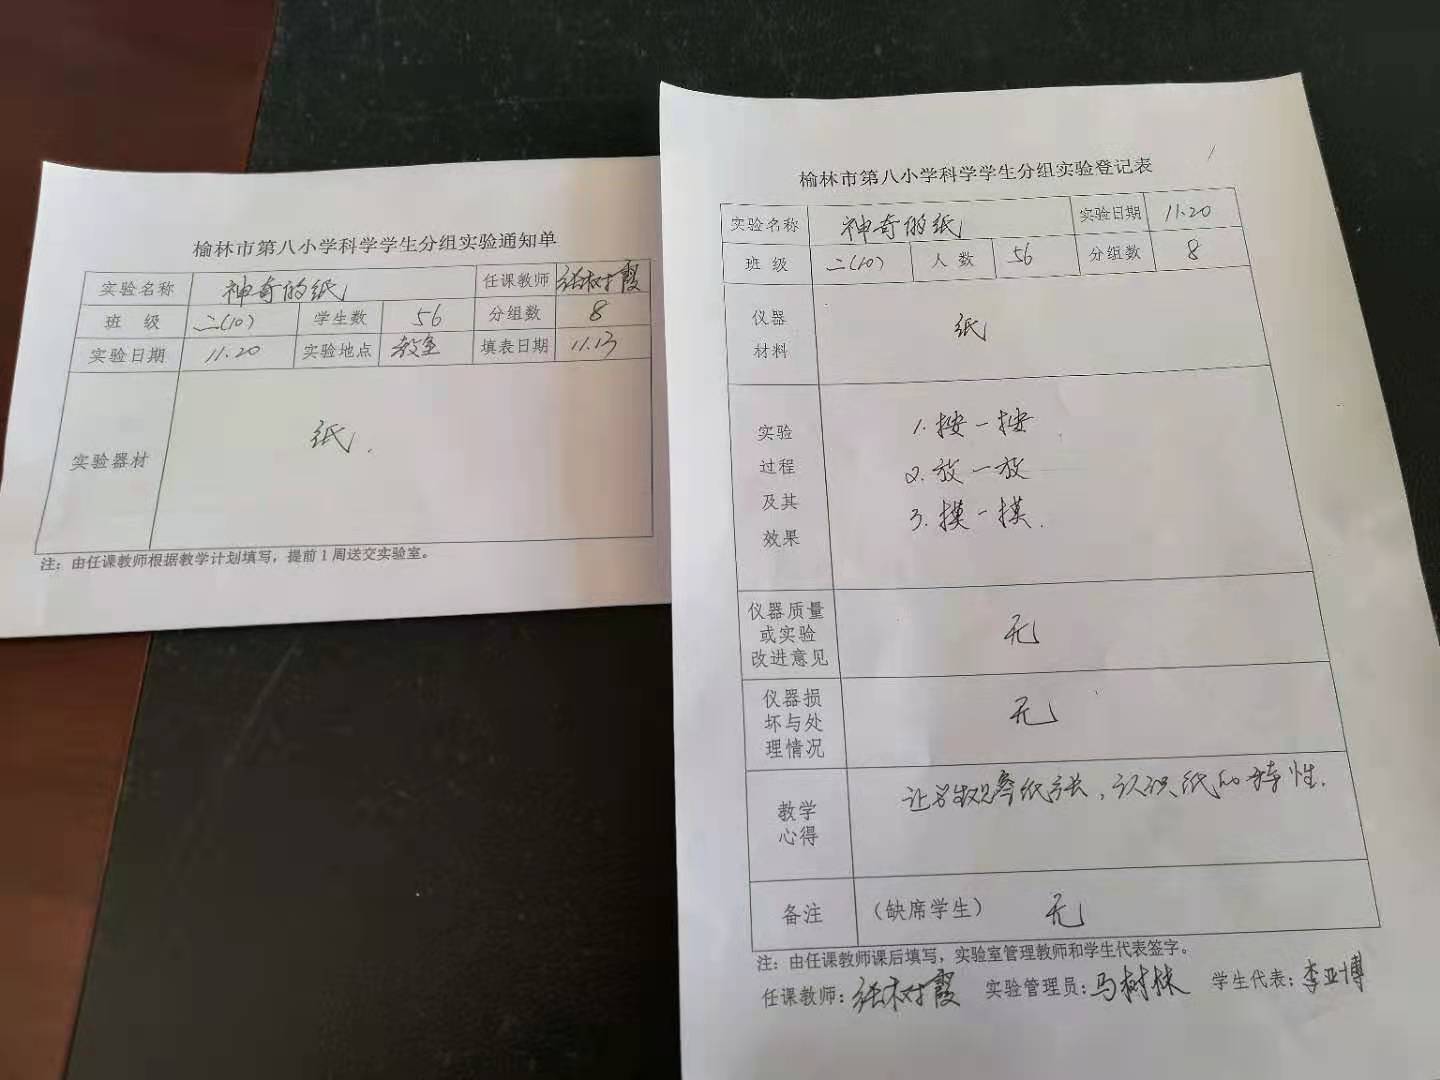 榆林市第八小学科学学生分组实验通知单
实验名称 神奇的纸 任课教师 张树霞
班 级 二(10) 学生数 56 分组数 8
实验日期 11.20 实验地点 教室 填表日期 11.13
实验器材 纸.
注：由任课教师根据教学计划填写，提前1周送交实验室。
榆林市第八小学科学学生分组实验登记表
实验名称 神奇的纸 实验日期 11.20
班 级 二(10) 人 数 56 分组数 8
仪器
材料
纸
实验
过程
及其
效果
1.按一按
2.放一放
3.摸一摸.
仪器质量
或实验
改进意见
无
仪器损
坏与处
理情况
无
教学
心得
让学生观察纸张，认识纸的特性.
备注 （缺席学生） 无
注：由任课教师课后填写，实验室管理教师和学生代表签字。
任课教师：张树霞 实验管理员：马树林 学生代表：李亚博